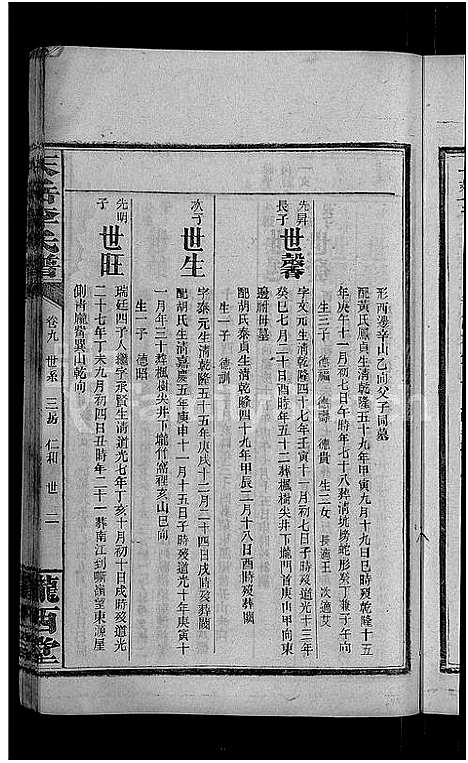 形酉邊辛山乙向父子同墓
配黃氏鳳貞生清乾隆五十九年甲寅九月十九日巳時歿乾隆十五
年庚子十一月初七日午時年七十八葬清坑塝蛇形癸丁兼子午向
生三子 德福 德壽 德貴 生三女 長適王 次適艾
先昇長子 世馨 字文元生清乾隆四十七年壬寅十一月初七日子時歿道光十三年
癸巳七月二十日酉時年五十二葬楓樹尖井下壠門首庚山甲向東
邊祔母墓
配胡氏泰貞生清乾隆四十九年甲辰二月十八日酉時歿葬闕
生一子 德訓
次子 世生 字泰元生清乾隆五十五年庚戌十二月二十四日戌時歿葬闕
配胡氏生清嘉慶五年庚申十一月十五日子時歿道光十年庚寅十
一月年三十葬楓樹尖井下壠竹窩裡亥山巳向
生一子 德昭
先明子 世旺 瑞廷四子入繼字承賢生清道光七年丁亥十月初十日戌時歿道光
二十七年丁未九月初四日丑時年二十一葬南江到嘶嶺望東源屋
側靑龍嘴巽山乾向
氏譜
卷九 世系 三房 仁和 世 二
隴西堂